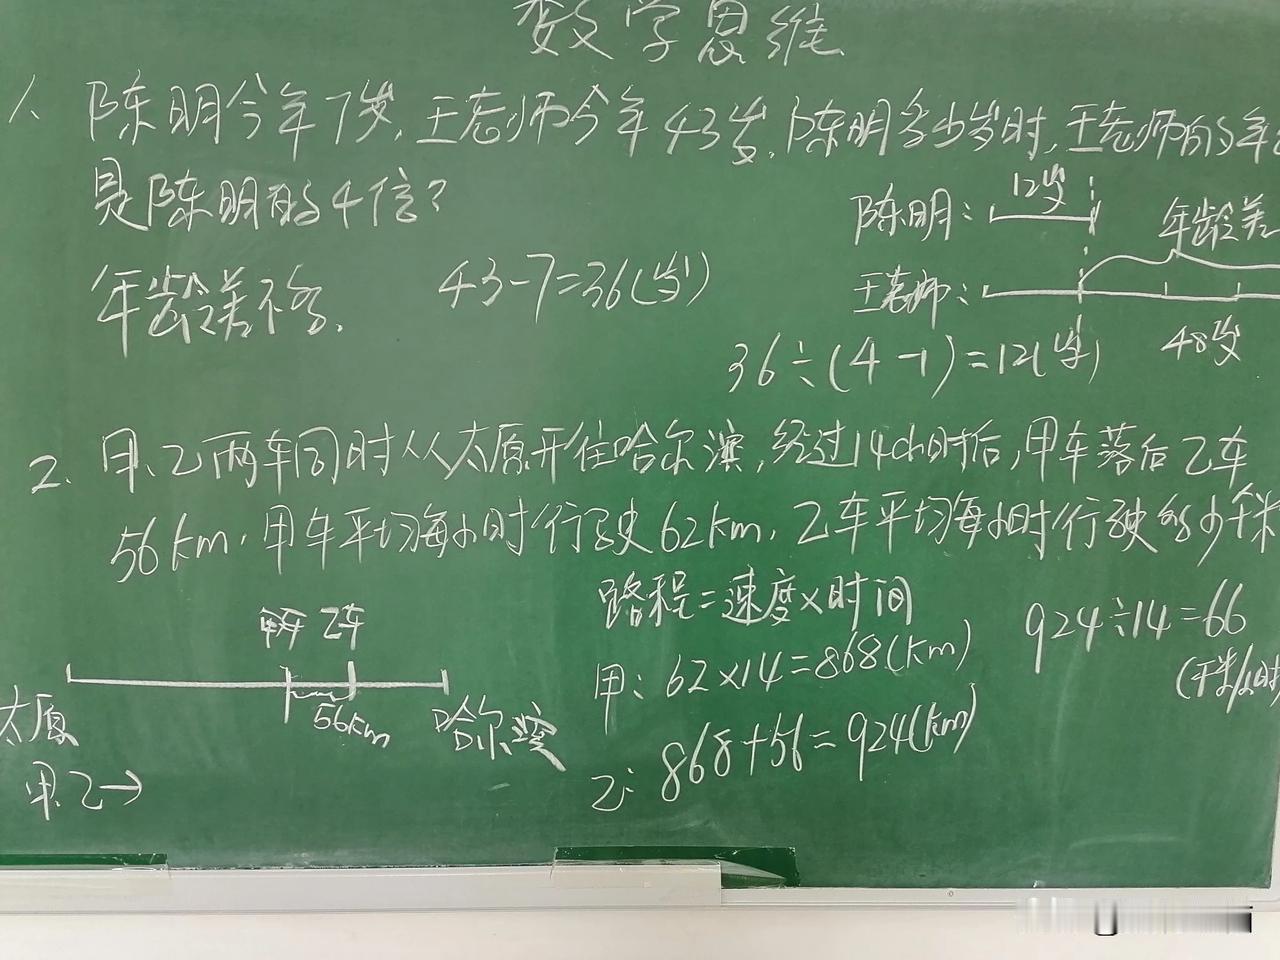 数学思维
1、陈明今年7岁,王老师今年43岁,陈明多少岁时,王老师的年
是陈明的4倍?
年龄差不多.
43-7=36(岁)
陈明: 12岁
年龄差
王老师:
48岁
36÷(4-1)=12(岁)
2. 甲、乙两车同时从太原开往哈尔滨,经过14小时后,甲车落后乙车
56km,甲车平均每小时行驶62km,乙车平均每小时行驶多少千米
路程=速度×时间
甲: 62×14=868(km)
乙: 868+56=924(km)
924÷14=66
(千米/小时
甲车 乙车
56km
太原
哈尔滨
甲.乙→